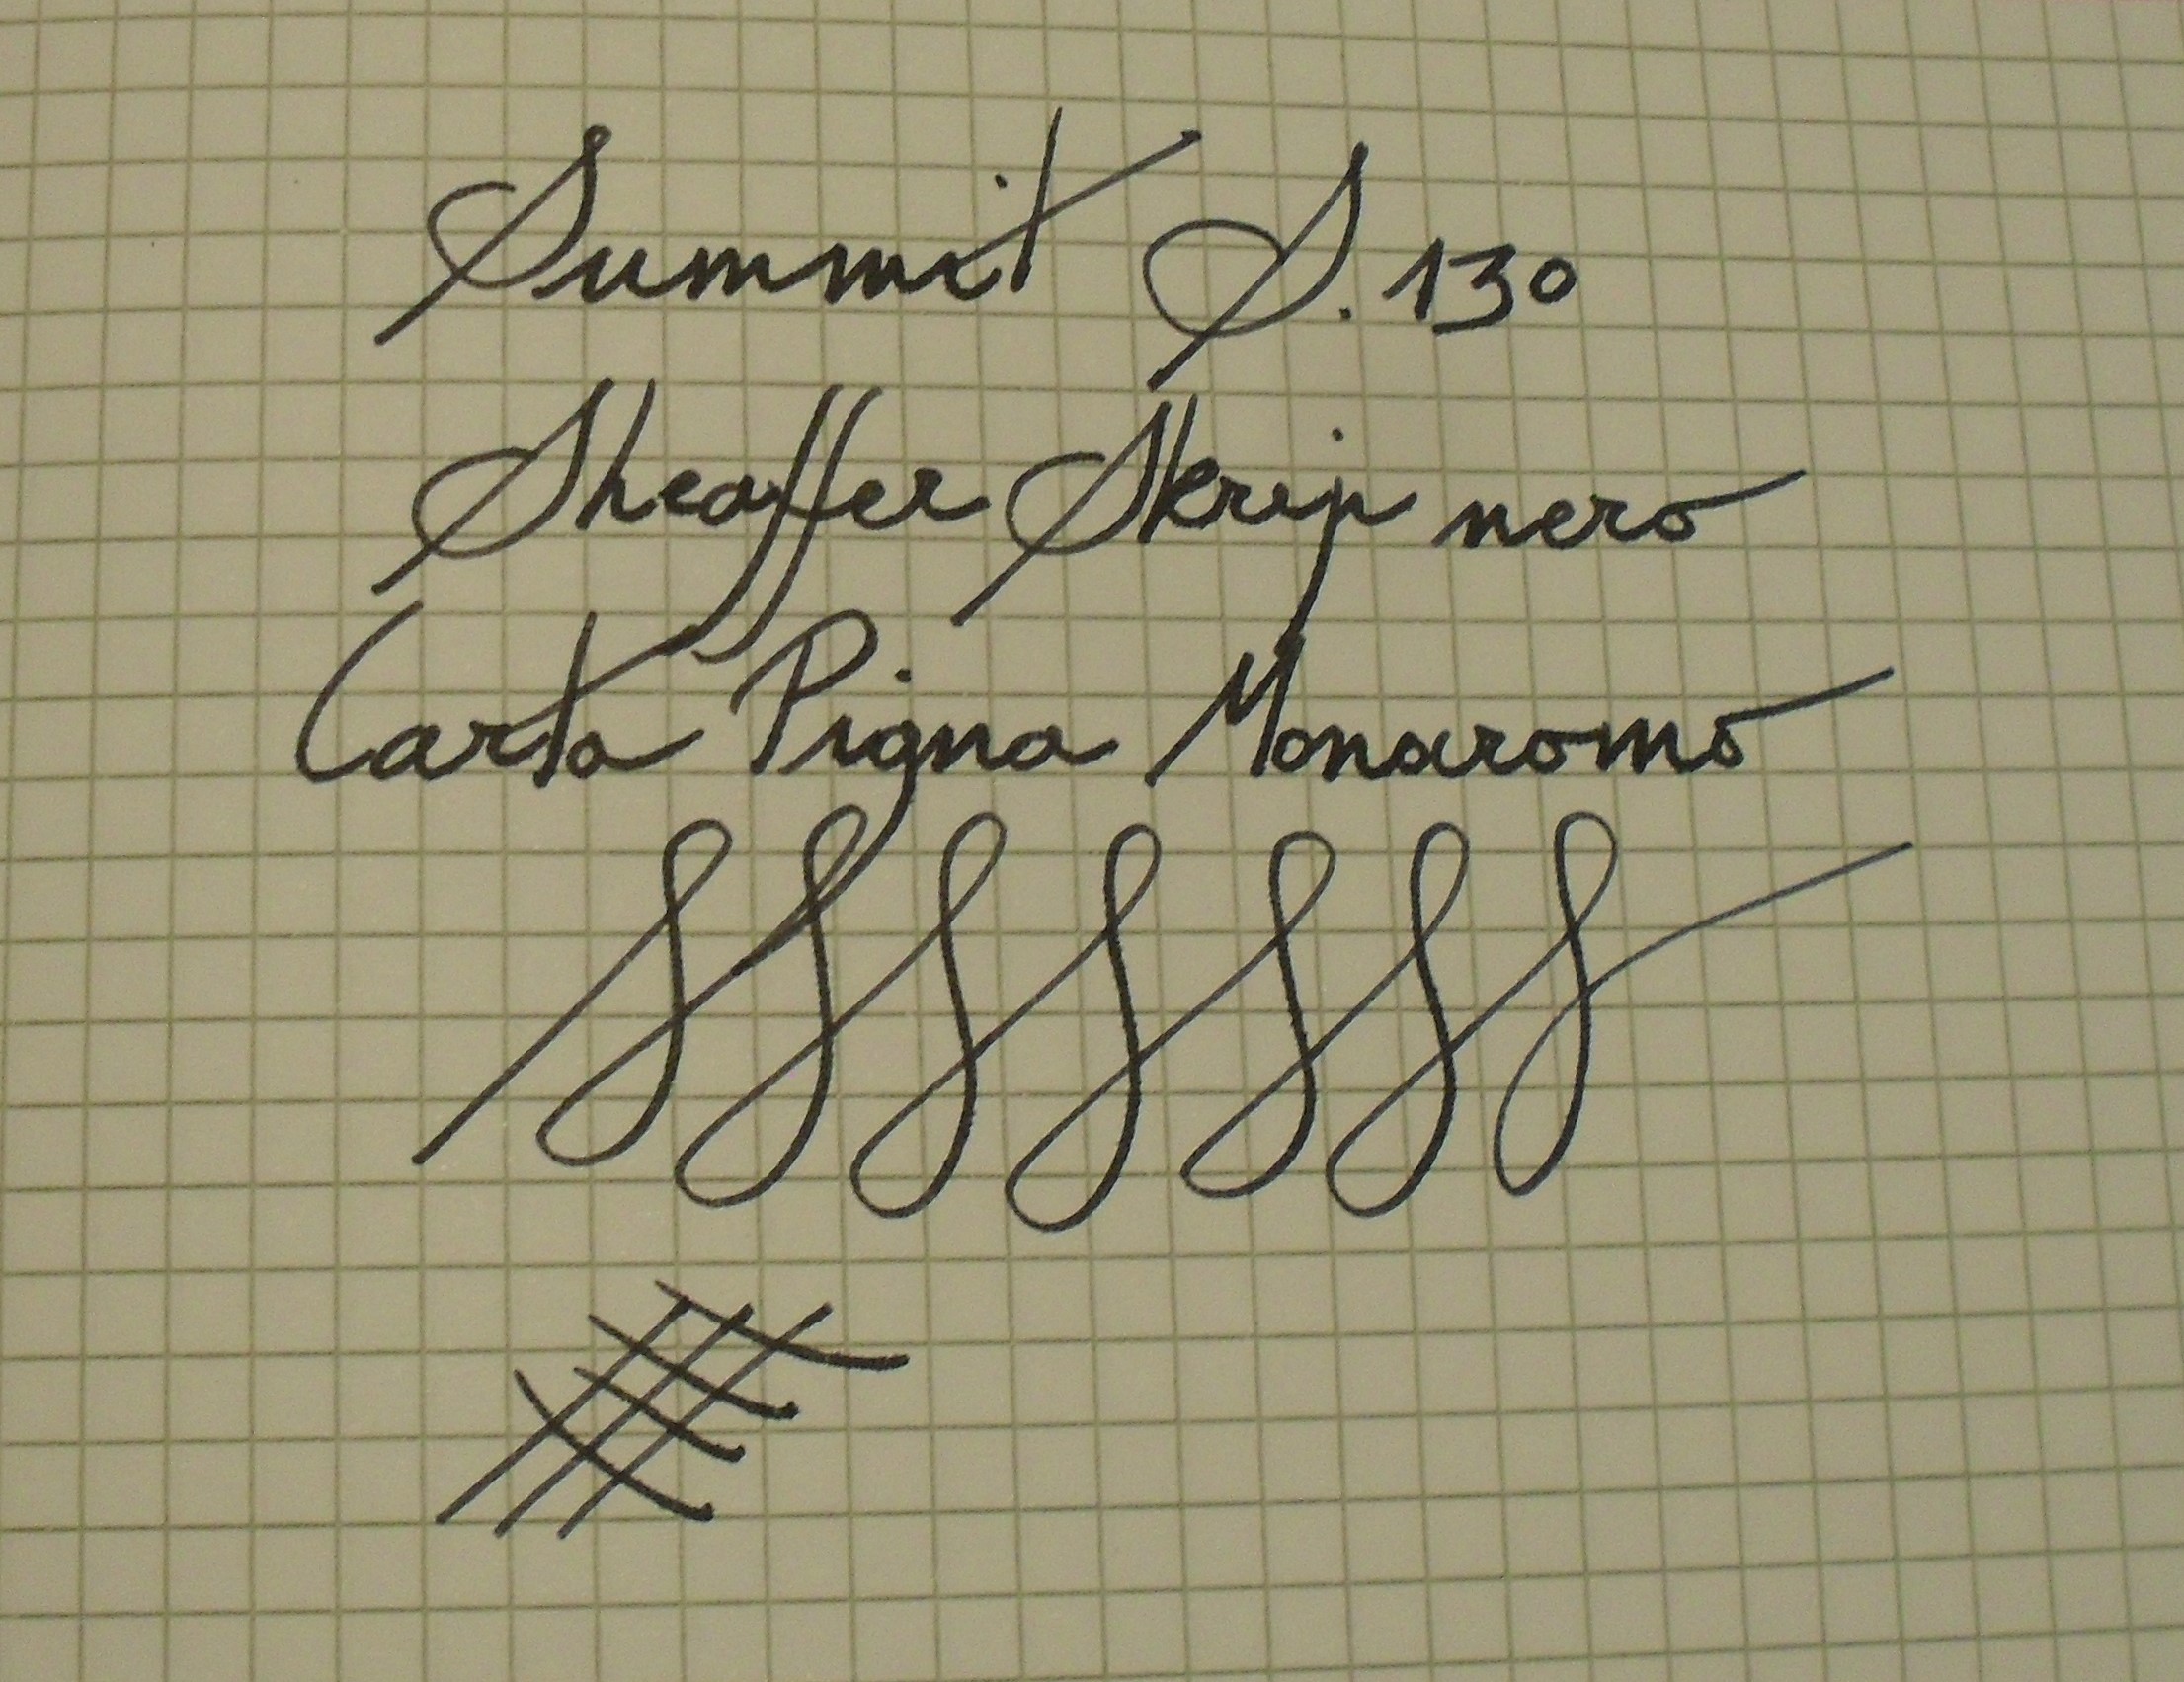 Summit S. 130
Sheaffer Skrip nero
Carta Pigna Monaromo